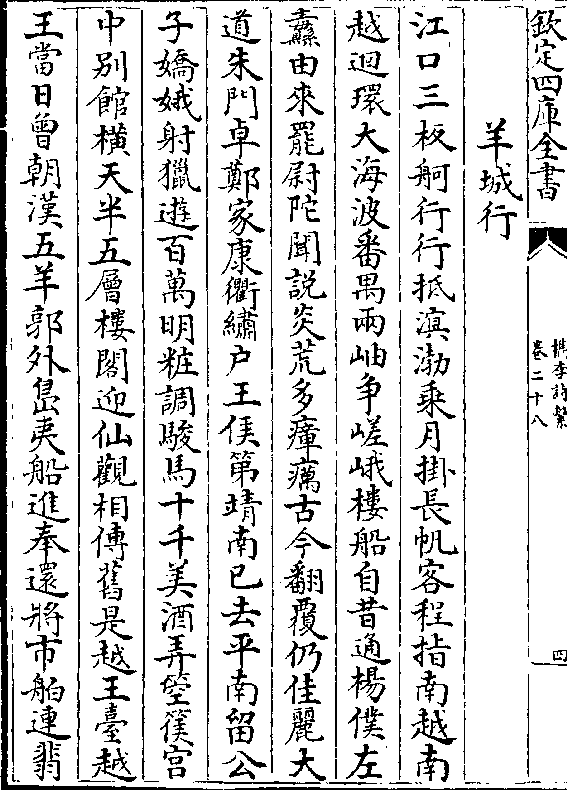 欽定四庫全書
檇李詩繫
卷二十八
四
羊城行
江口三板舸行行抵滇渤乗月掛長帆客程指南越南
越迴環大海波番禺兩岫争嵯峨樓船自昔通楊僕左
纛由來罷尉陀聞説炎荒多瘴癘古今翻覆仍佳麗大
道朱門卓鄭家康衢繡户王侯第靖南已去平南留公
子嬌娥射獵遊百萬明粧調駿馬十千美酒弄箜篌宫
中别館横天半五層樓閣迎仙觀相傳舊是越王臺越
王當日曾朝漢五羊郭外島夷船進奉還將市舶連翡